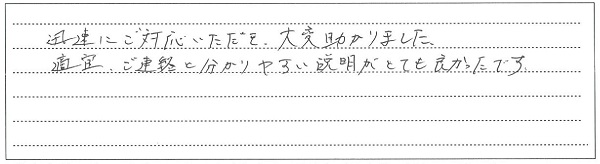 迅速にご対応いただき、大変助かりました。
適宜、ご連絡と分かりやすい説明がとても良かったです。